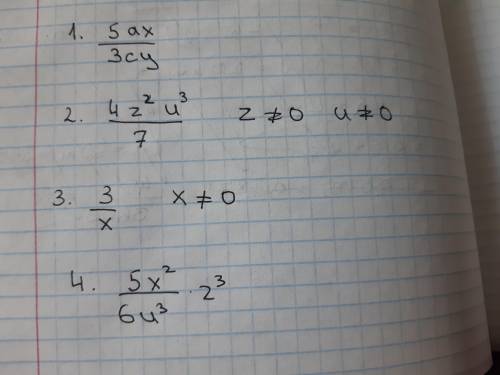 1. 5ax/3cy
2. 4z²u³/7 z ≠ 0 u ≠ 0
3. 3/x x ≠ 0
4. 5x²/6u³ · z³